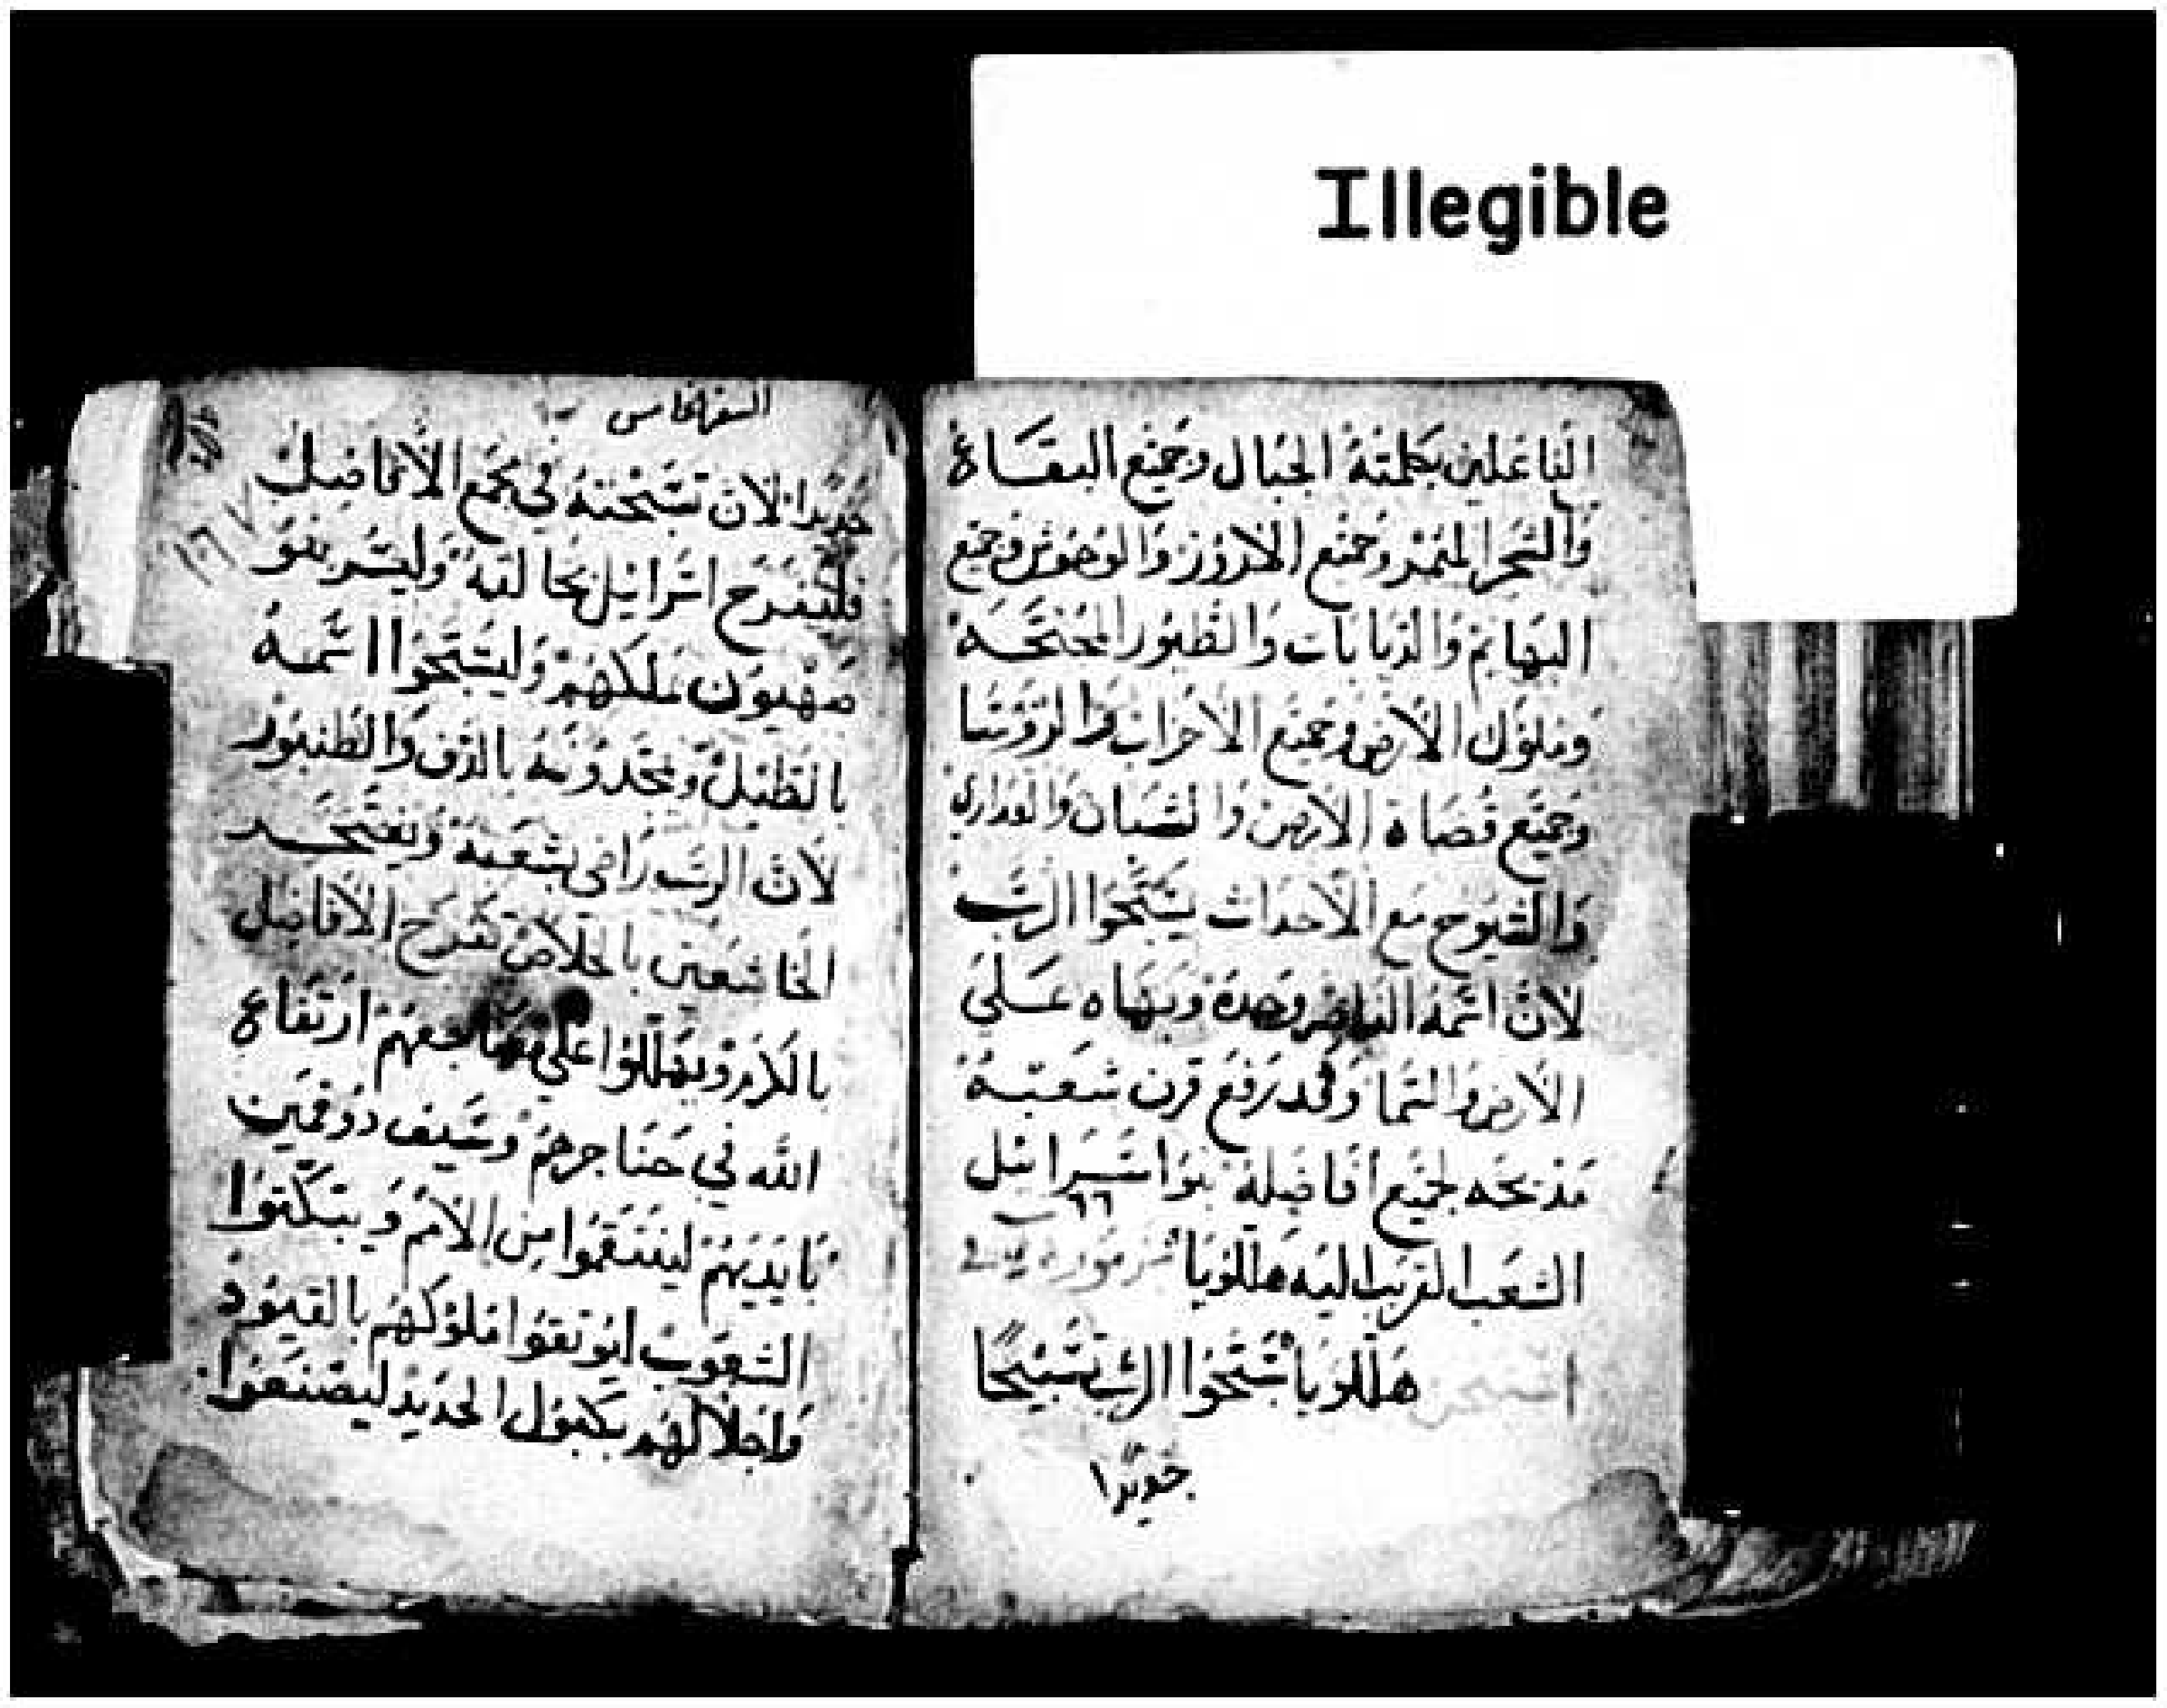 Illegible
الفاعلين بكلمته الجبال وجميع البقاع
والشجر المثمر وجميع الارز والوحوش وجميع
البهايم والدبابات والطيور المجنحه
وملوك الارض وجميع الاحزاب والروسا
وجميع قضاة الارض والشبان والعدارى
والشيوخ مع الاحداث يسبحوا الرب
لان اسمه وحده وبهاه على
الارض والسما وقد رفع قرن شعبه
مذبحه لجميع افاضله بنوا اسرائيل
الشعب القريب اليه هللويا مزمور
هللويا سبحوا الرب تسبيحًا
جديدًا
السفر الخامس
١٦٧
جديدا لان تسبحته في مجمع الافاضل
فليفرح اسرائيل بخالقه وليشرىفو
صهيون بملكهم وليسبحوا اسمه
بالطبل ويمجدونه بالدف والطنبور
لان الرب راضى بشعبه ويمنحد
الخاشعين بالخلاص تفرح الافاضل
بالكرم ويهللوا على مضاجعهم ارتفاع
الله في حناجرهم وسيف ذو فمين
بايديهم لينتقموا من الامم ويبكتوا
الشعوب ليوثقوا ملوكهم بالقيود
واجلالهم بكبول الحديد ليصنعوا